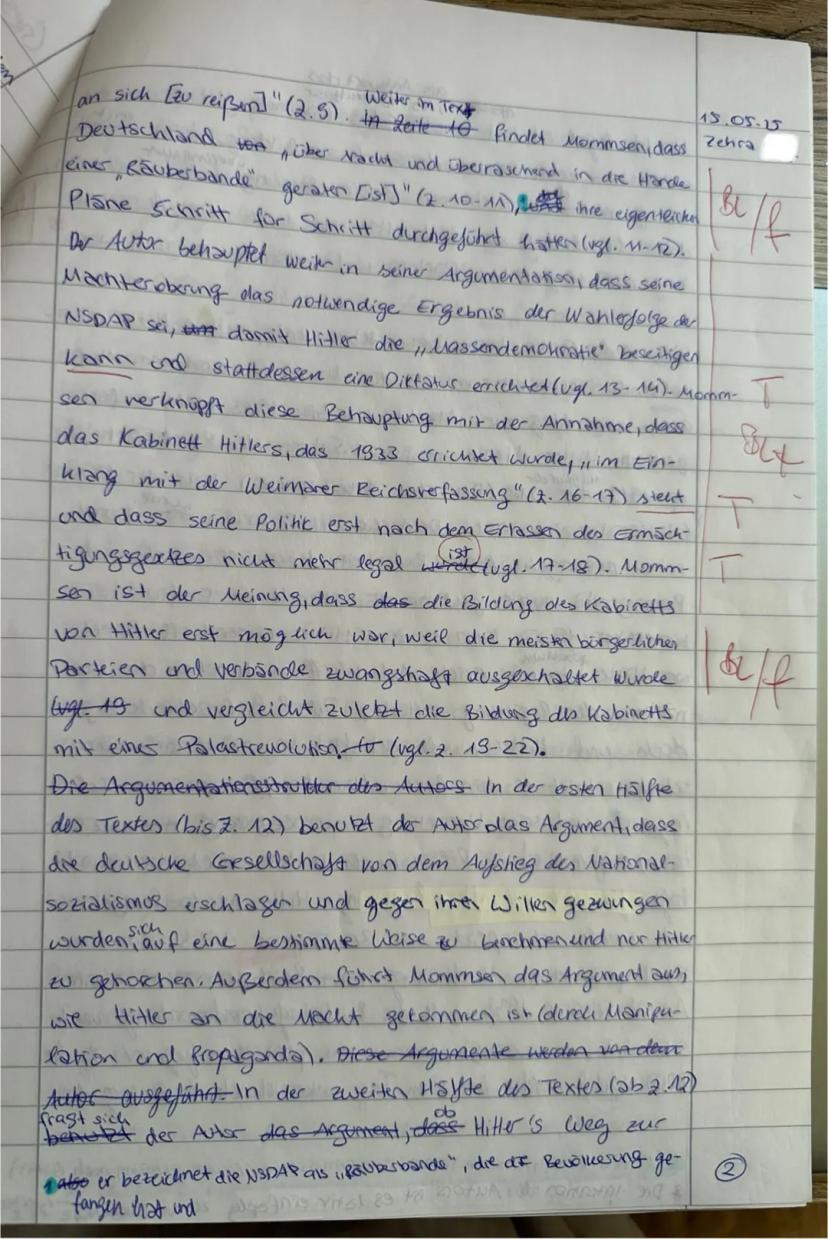 an sich [zu reißen]" (Z. 9). Weiter im Text
15.05.25
Zehra
Deutschland findet Mommsen, dass
„über Nacht und überraschend in die Hände
einer „Räuberbande" geraten [ist]" (Z. 10-11), ihre eigentlichen
Bz/f
Pläne Schritt für Schritt durchgeführt hätten (vgl. 11-12).
Der Autor behauptet weiter in seiner Argumentation, dass seine
Machteroberung das notwendige Ergebnis der Wahlerfolge der
NSDAP sei, damit Hitler die „Massendemokratie" beseitigen
kann und stattdessen eine Diktatur errichtet (vgl. 13-14). Momm-
T
sen verknüpft diese Behauptung mit der Annahme, dass
das Kabinett Hitlers, das 1933 errichtet wurde, „im Ein-
klang mit der Weimarer Reichsverfassung" (Z. 16-17) steht
T
und dass seine Politik erst nach dem Erlassen des Ermäch-
tigungsgesetzes nicht mehr legal ist (vgl. 17-18). Momm-
T
sen ist der Meinung, dass das die Bildung des Kabinetts
von Hitler erst möglich war, weil die meisten bürgerlichen
Parteien und Verbände zwangshaft ausgeschaltet wurde
Bz/f
vgl. 19 und vergleicht zuletzt die Bildung des Kabinetts
mit einer Palastrevolution (vgl. Z. 19-22).
Die Argumentationsstruktur des Autors In der ersten Hälfte
des Textes (bis Z. 12) benutzt der Autor das Argument, dass
die deutsche Gesellschaft von dem Aufstieg des National-
sozialismus erschlagen und gegen ihren Willen gezwungen
wurden, sich auf eine bestimmte Weise zu benehmen und nur Hitler
zu gehorchen. Außerdem führt Mommsen das Argument aus,
wie Hitler an die Macht gekommen ist (durch Manipu-
lation und Propaganda). Diese Argumente werden von dem
Autor ausgeführt. In der zweiten Hälfte des Textes (ab Z. 12)
fragt sich
benutzt der Autor das Argument, dass ob Hitler's Weg zur
also er bezeichnet die NSDAP als „Räuberbande", die die Bevölkerung ge-
fangen hat und
2